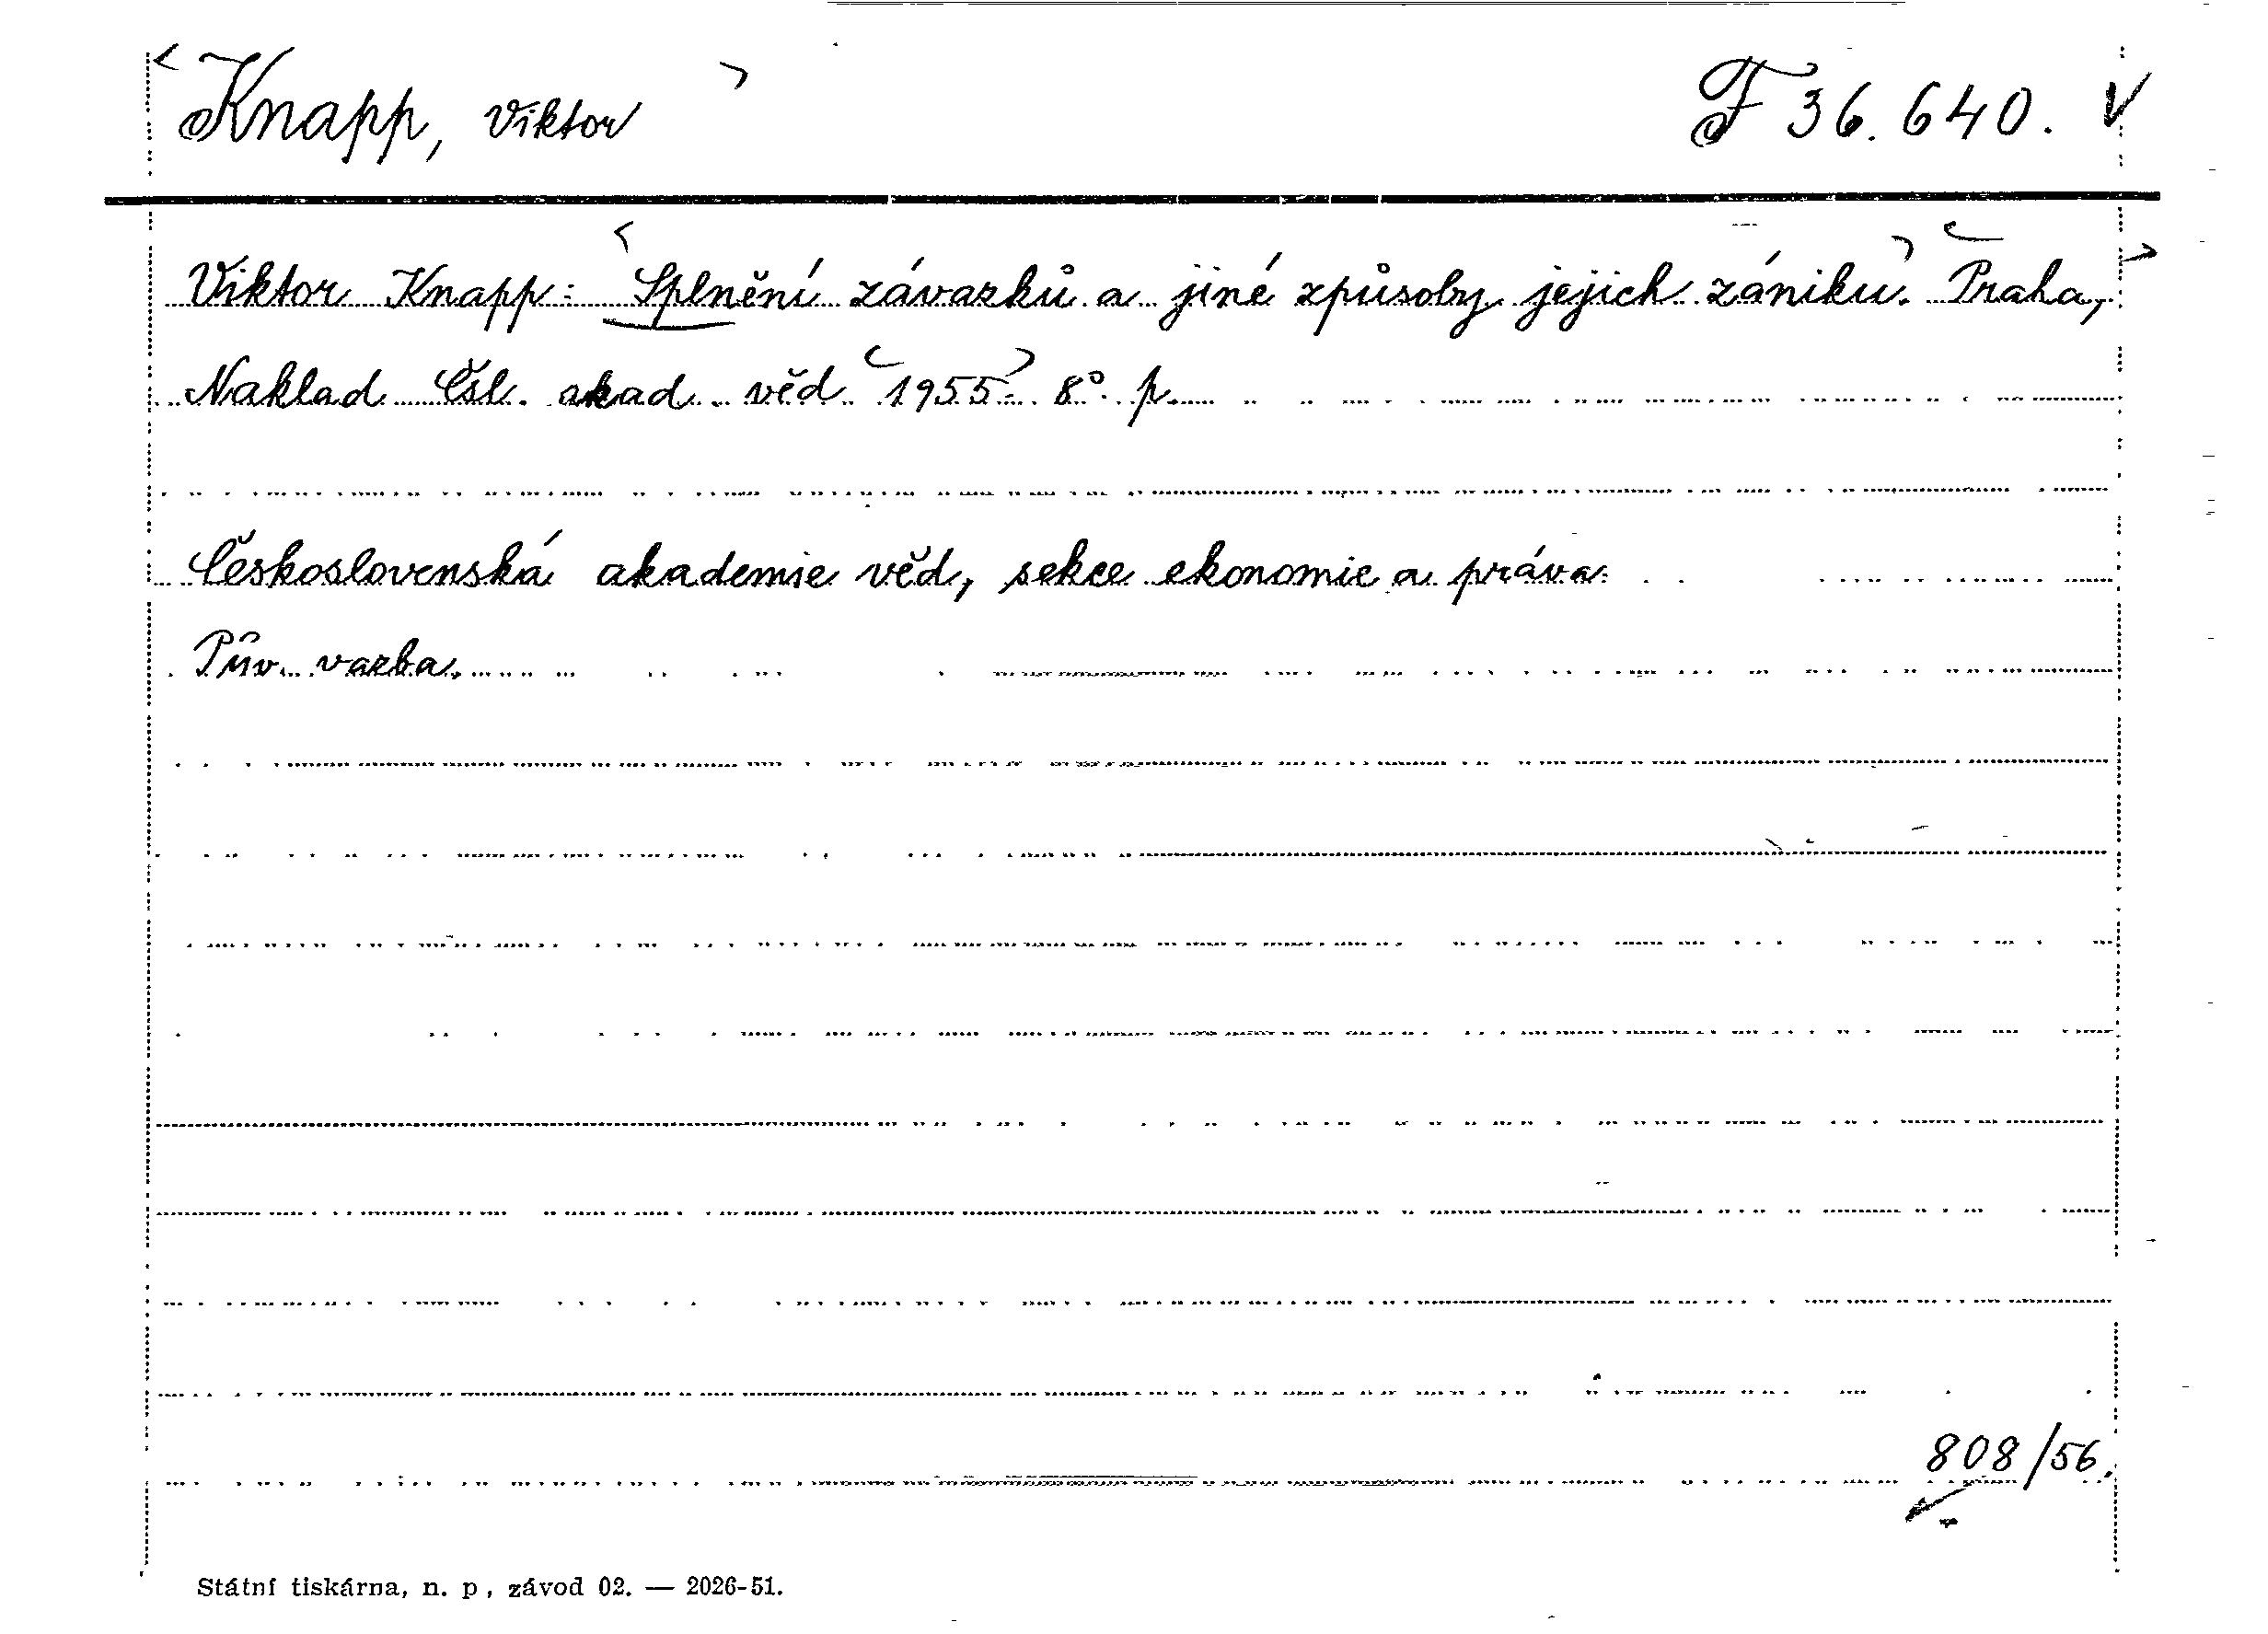 Knapp, Viktor F 36.640. V
Viktor Knapp: Splnění závazků a jiné způsoby jejich zániku. Praha,
Naklad Čsl. akad. věd 1955. 8° p.
Československá akademie věd, sekce ekonomie a práva.
Pův. vazba.
808/56.
Státní tiskárna, n. p., závod 02. — 2026-51.